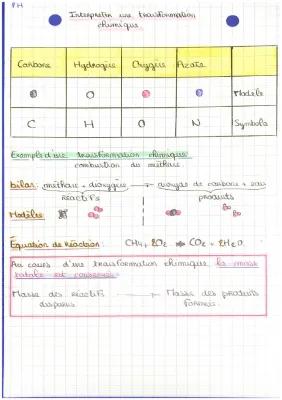 PH
Interpréter une transformation
chimique
Carbone Hydrogène Oxygène Azote
Modèle
C H O N Symbole
Exemple d'une transformation chimique:
combustion du méthane
bilan: méthane + dioxygène → dioxyde de carbone + eau
Réactifs produits
Modèles
Équation de Réaction: CH4 + 2O2 → CO2 + 2H2O
Au cours d'une transformation chimique la masse
totale est conservée
Masse des réactifs → Masse des produits
disparus formés.